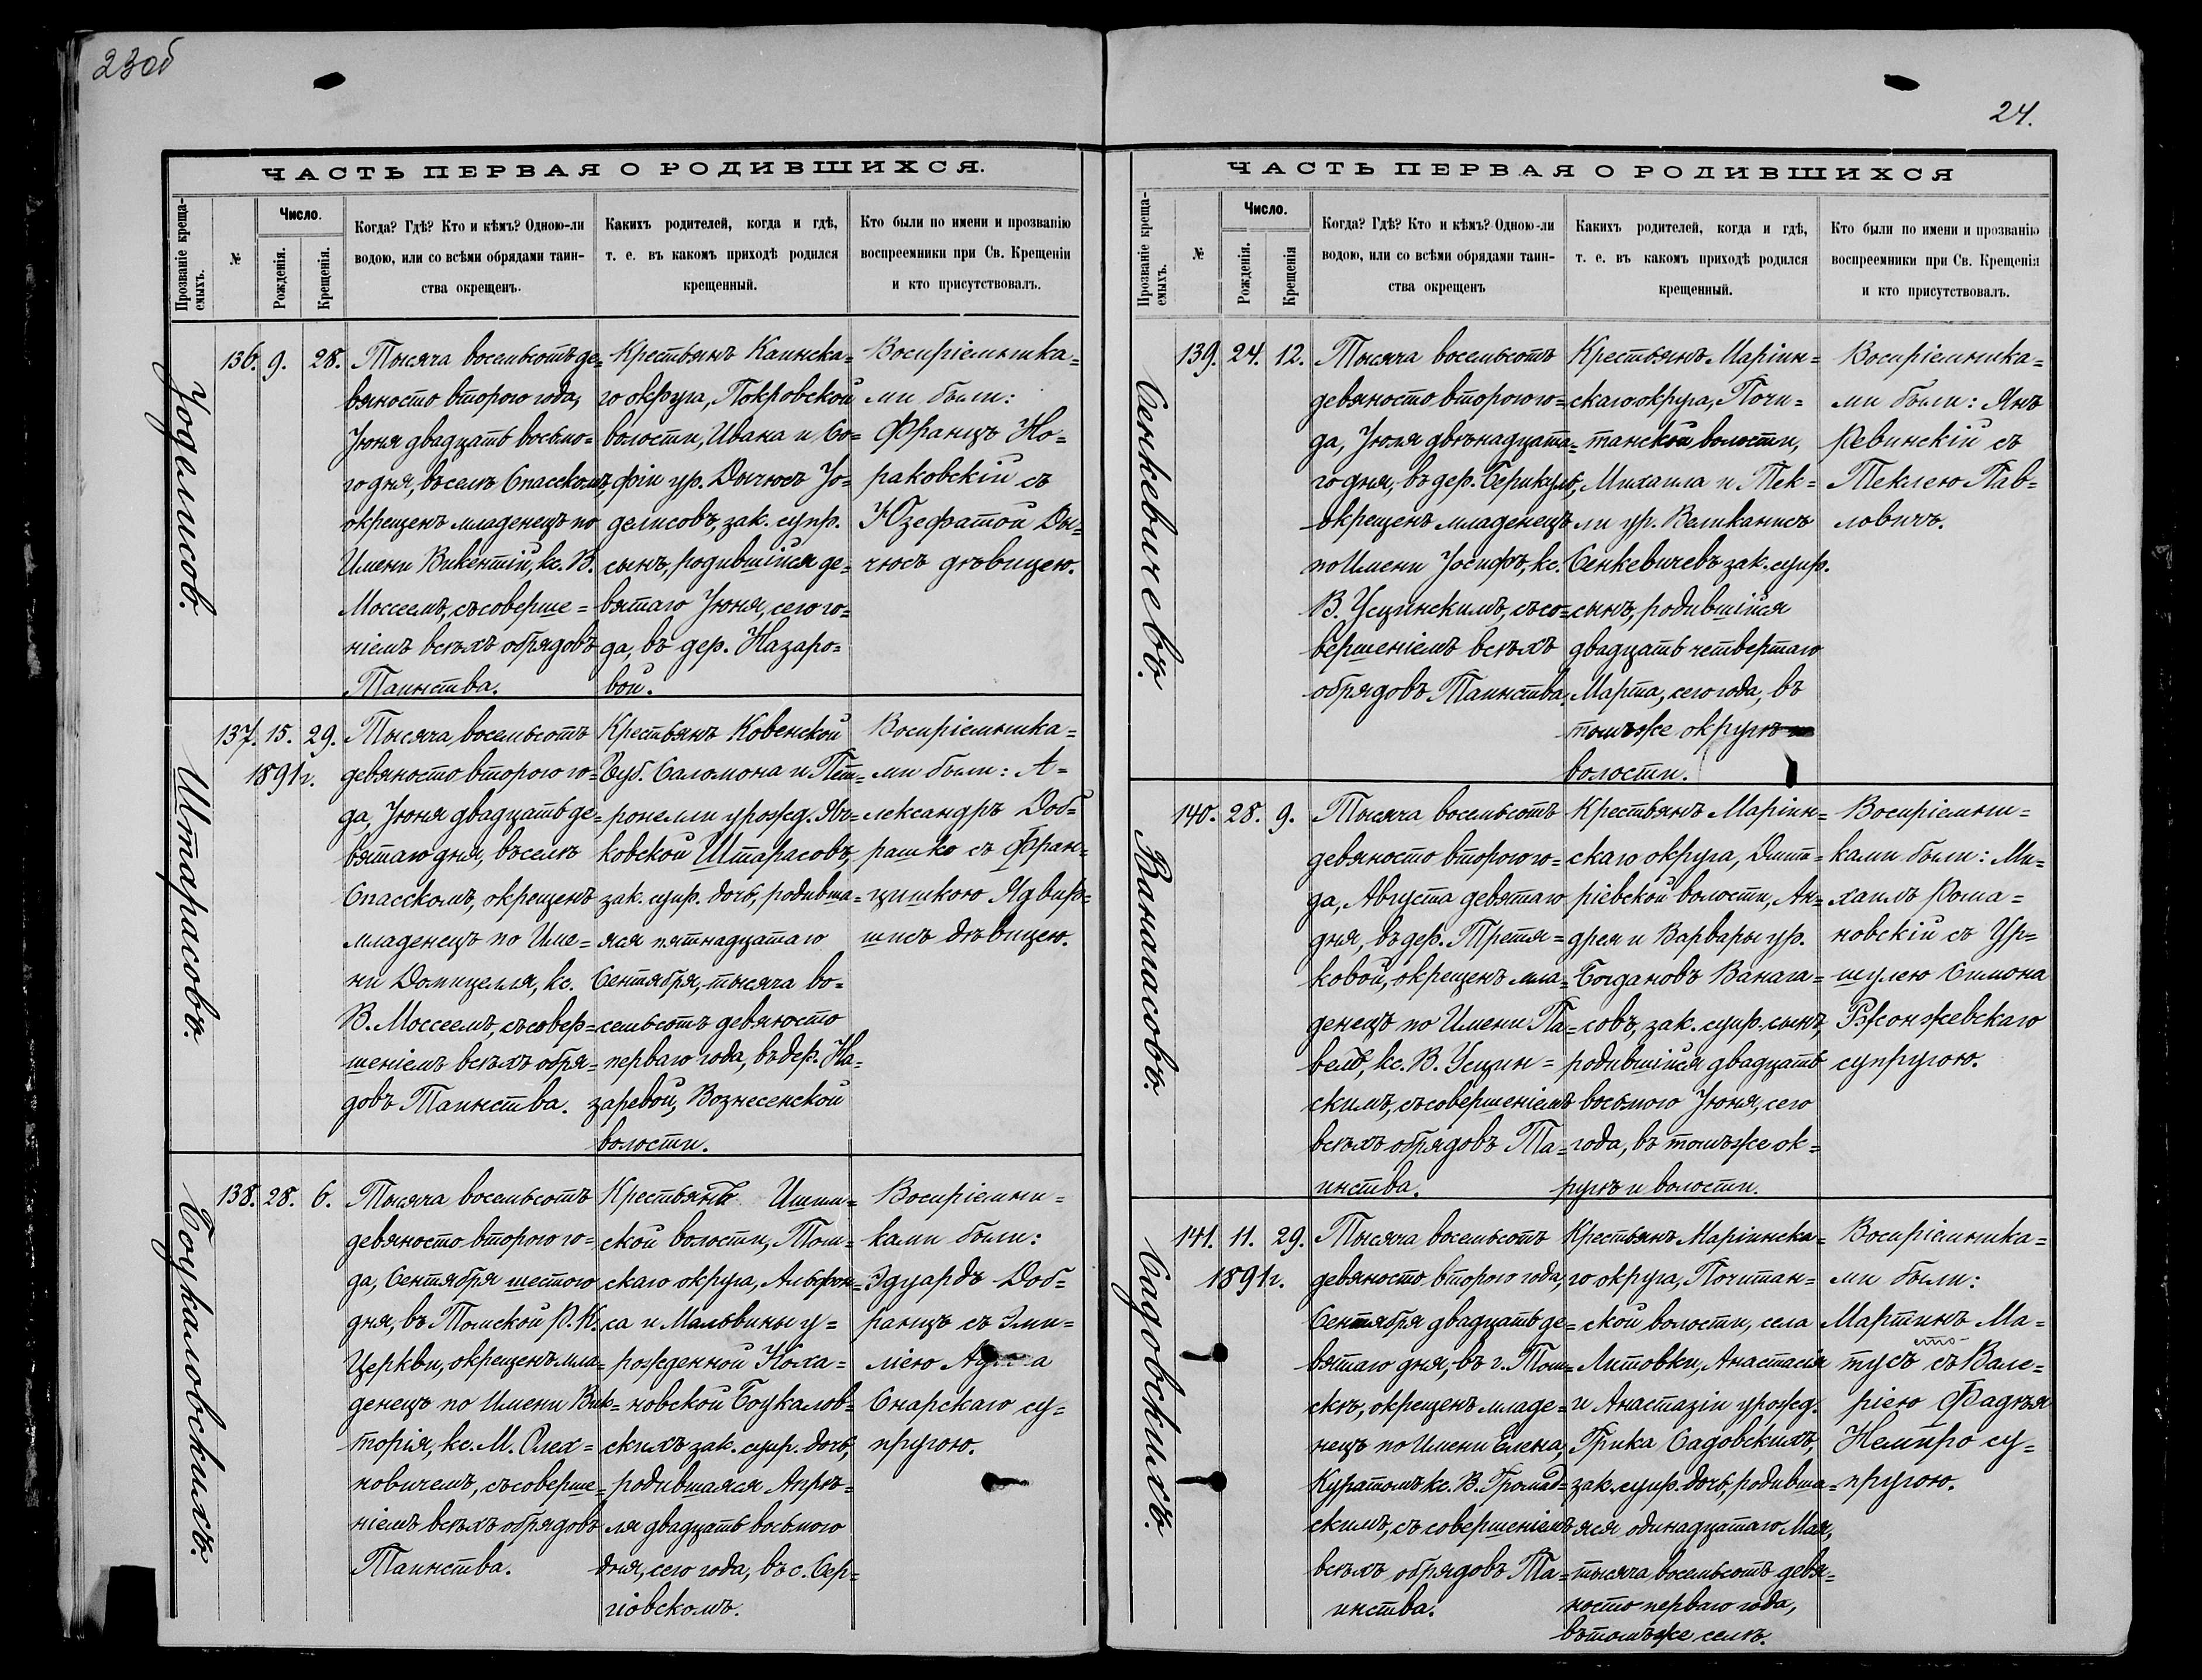 23об
ЧАСТЬ ПЕРВАЯ О РОДИВШИХСЯ.
Прозваніе креща-
емыхъ.
№
Число.
Рожденія.
Крещенія.
Когда? Гдѣ? Кто и кѣмъ? Одною-ли
водою, или со всѣми обрядами таин-
ства окрещенъ.
Какихъ родителей, когда и гдѣ,
т. е. въ какомъ приходѣ родился
крещенный.
Кто были по имени и прозванію
воспреемники при Св. Крещеніи
и кто присутствовалъ.
Іоделисов.
136. 9. 28.
Тысяча восемьсотъ де-
вяносто второго года,
Іюня двадцать восьмо-
го дня, въ селѣ Спасскомъ,
окрещенъ младенецъ по
Имени Викентій, кс. В.
Моссеемъ, съ соверше=
ніемъ всѣхъ обрядовъ
Таинства.
Крестьянъ Каинска=
го округа, Покровской
волости, Ивана и Со=
фіи ур. Дычюсъ Іо=
делисовъ, зак. супр.
сынъ, родившійся де=
вятаго Іюня, сего го=
да, въ дер. Назаро=
вой.
Воспріемника=
ми были:
Францъ Но=
раковскій съ
Юзефатой Ды=
чюсъ дѣвицею.
Штарасовъ.
137. 15. 29.
1891г.
Тысяча восемьсотъ
девяносто второго го=
да, Іюня двадцать де=
вятаго дня, въ селѣ
Спасскомъ, окрещенъ
младенецъ по Име=
ни Домицелля, кс.
В. Моссеемъ, съ совер=
шеніемъ всѣхъ обря=
довъ Таинства.
Крестьянъ Ковенской
Губ. Саломона и Пет=
ронелли урожд. Яч=
ковской Штарасовъ,
зак. супр. дочь, родивша=
яся пятнадцатаго
Сентября, тысяча во=
семьсотъ девяносто
перваго года, въ дер. На=
заревой, Вознесенской
волости.
Воспріемника=
ми были: А=
лександръ Доб=
рашко съ Фран=
цишкою Ядвир=
шисъ дѣвицею.
Боцкаловскихъ.
138. 28. 6.
Тысяча восемьсотъ
девяносто второго го=
да, Сентября шестого
дня, въ Томской Р. К.
Церкви, окрещенъ мла=
денецъ по Имени Вик=
торія, кс. М. Олех=
новичемъ, съ соверше=
ніемъ всѣхъ обрядовъ
Таинства.
Крестьянъ Ишим=
ской волости, Том=
скаго округа, Альфон=
са и Мальвины у=
рожденной Коха=
новской Боцкалов=
скихъ зак. супр. дочь,
родившаяся Апрѣ=
ля двадцать восьмого
дня, сего года, въ с. Сер=
гіовскомъ.
Воспріемни=
ками были:
Эдуардъ Доб=
ранцъ съ Эми=
ліею
Снарскаго су=
пругою.
24.
ЧАСТЬ ПЕРВАЯ О РОДИВШИХСЯ
Прозваніе креща-
емыхъ.
№
Число.
Рожденія.
Крещенія
Когда? Гдѣ? Кто и кѣмъ? Одною-ли
водою, или со всѣми обрядами таин-
ства окрещенъ
Какихъ родителей, когда и гдѣ,
т. е. въ какомъ приходѣ родился
крещенный.
Кто были по имени и прозванію
воспреемники при Св. Крещенія
и кто присутствовалъ.
Сенкевичевъ.
139. 24. 12.
Тысяча восемьсотъ
девяносто второго го=
да, Іюля двѣнадцата=
го дня, въ дер. Берикулѣ,
окрещенъ младенецъ
по Имени Іосифъ, кс.
В. Усцинскимъ, съ со=
вершеніемъ всѣхъ
обрядовъ Таинства.
Крестьянъ Маріин=
скаго округа, Почи=
танской волости,
Михаила и Тек=
ли ур. Великанисъ
Сенкевичевъ зак. супр.
сынъ, родившійся
двадцать четвертаго
Марта, сего года, въ
томъ же округѣ и
волости.
Воспріемника=
ми были: Янъ
Ревинскій съ
Теклею Пав=
ловичъ.
Ванагасовъ.
140. 28. 9.
Тысяча восемьсотъ
девяносто второго го=
да, Августа девятаго
дня, въ дер. Третя=
ковой, окрещенъ мла=
денецъ по Имени Па=
велъ, кс. В. Усцин=
скимъ, съ совершеніемъ
всѣхъ обрядовъ Та=
инства.
Крестьянъ Маріин=
скаго округа, Дмит=
ріевской волости, Ан=
дрея и Варвары ур.
Богдановъ Ванага=
совъ, зак. супр. сынъ,
родившійся двадцать
восьмого Іюня, сего
года, въ томъ же ок=
ругѣ и волости.
Воспріемни=
ками были: Ми=
хаилъ Рома=
новскій съ Ур=
шулею Симона
Ржонжевскаго
супругою.
Садовскихъ.
141. 11. 29.
1891г.
Тысяча восемьсотъ
девяносто второго года,
Сентября двадцать де=
вятаго дня, въ г. Том=
скѣ, окрещенъ младе=
нецъ по Имени Елена,
Куратомъ кс. В. Громад=
скимъ, съ совершеніемъ
всѣхъ обрядовъ Та=
инства.
Крестьянъ Маріинска=
го округа, Почитан=
ской волости, села
Литовки, Анастасія
и Анастазіи урожд.
Грика Садовскихъ,
зак. супр. дочь, родивша=
яся одинадцатаго Мая,
тысяча восемьсотъ девя=
носто перваго года,
въ томъ же селѣ.
Воспріемника=
ми были:
Мартинъ Ма=
тусъ съ Вале=
ріею Фадѣя
Немиро су=
пругою.